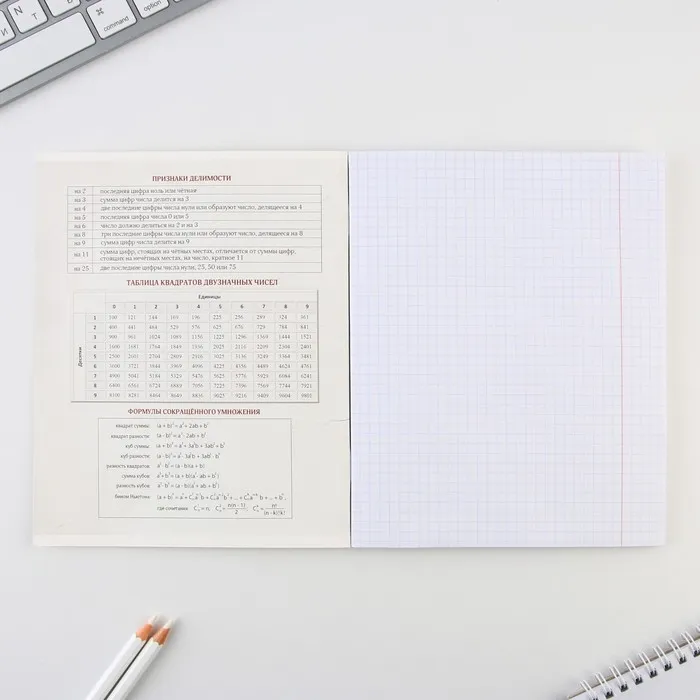 N
И
⌘
command
option
ПРИЗНАКИ ДЕЛИМОСТИ
на 2 последняя цифра ноль или чётная
на 3 сумма цифр числа делится на 3
на 4 две последние цифры числа нули или образуют число, делящееся на 4
на 5 последняя цифра числа 0 или 5
на 6 число должно делиться на 2 и на 3
на 8 три последние цифры числа нули или образуют число, делящееся на 8
на 9 сумма цифр числа делится на 9
на 11 сумма цифр, стоящих на чётных местах, отличается от суммы цифр,
стоящих на нечётных местах, на число, кратное 11
на 25 две последние цифры числа нули, 25, 50 или 75
ТАБЛИЦА КВАДРАТОВ ДВУЗНАЧНЫХ ЧИСЕЛ
Единицы
0 1 2 3 4 5 6 7 8 9
Десятки
1 100 121 144 169 196 225 256 289 324 361
2 400 441 484 529 576 625 676 729 784 841
3 900 961 1024 1089 1156 1225 1296 1369 1444 1521
4 1600 1681 1764 1849 1936 2025 2116 2209 2304 2401
5 2500 2601 2704 2809 2916 3025 3136 3249 3364 3481
6 3600 3721 3844 3969 4096 4225 4356 4489 4624 4761
7 4900 5041 5184 5329 5476 5625 5776 5929 6084 6241
8 6400 6561 6724 6889 7056 7225 7396 7569 7744 7921
9 8100 8281 8464 8649 8836 9025 9216 9409 9604 9801
ФОРМУЛЫ СОКРАЩЁННОГО УМНОЖЕНИЯ
квадрат суммы: (a + b)² = a² + 2ab + b²
квадрат разности: (a - b)² = a² - 2ab + b²
куб суммы: (a + b)³ = a³ + 3a²b + 3ab² + b³
куб разности: (a - b)³ = a³ - 3a²b + 3ab² - b³
разность квадратов: a² - b² = (a - b)(a + b)
сумма кубов: a³ + b³ = (a + b)(a² - ab + b²)
разность кубов: a³ - b³ = (a - b)(a² + ab + b²)
бином Ньютона:
где сочетания